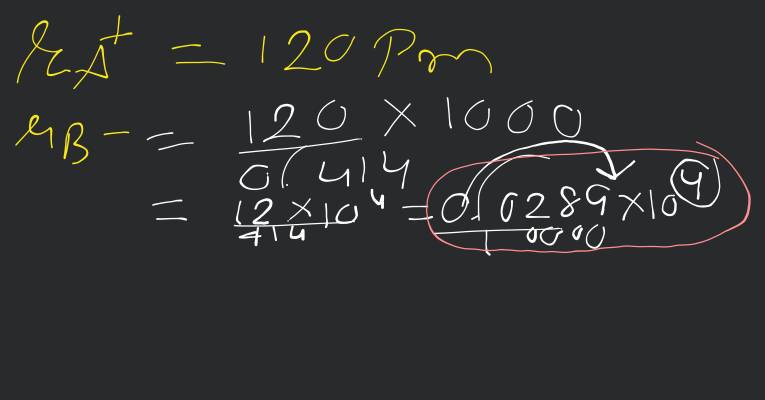 rA+ = 120 Pm
rB- = 120 × 1000
0.414
= 12 × 10^4 / 414 = 0.0289 × 10^4
10000